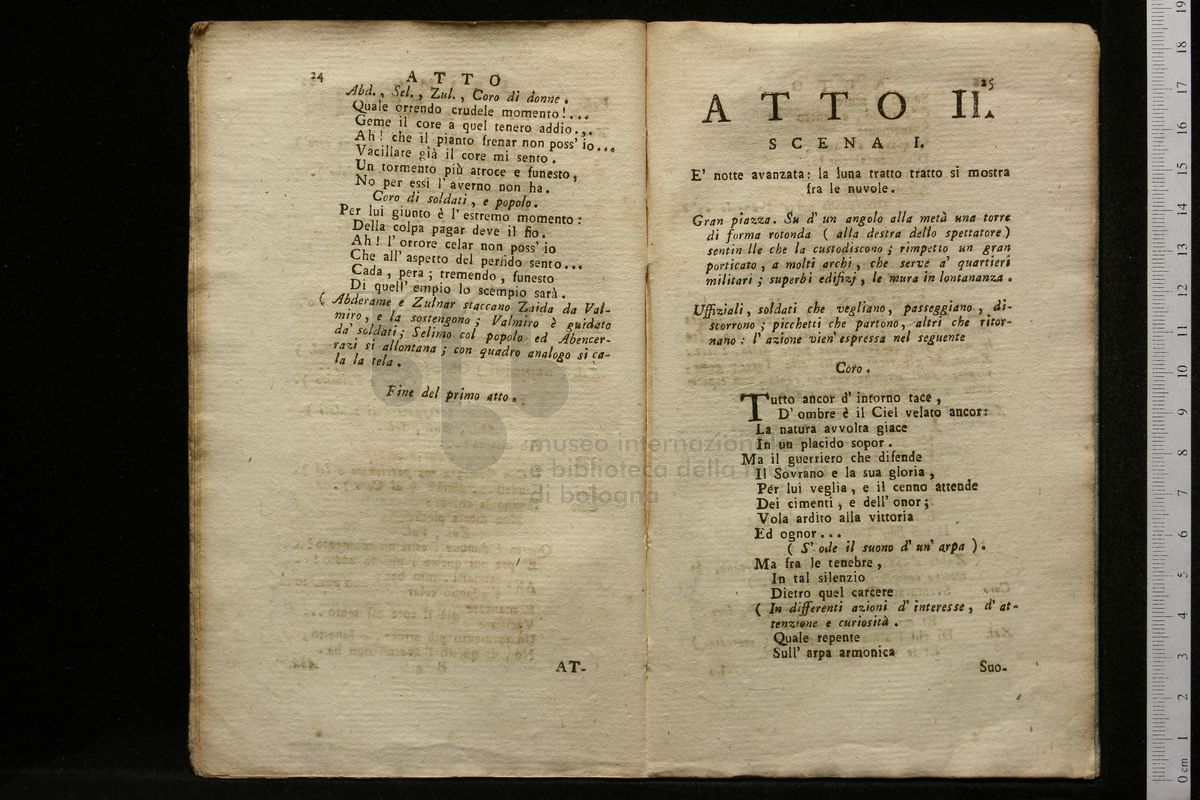 24 ATTO
Abd., Sel., Zul., Coro di donne.
Quale orrendo crudele momento!...
Geme il core a quel tenero addio...
Ah! che il pianto frenar non poss' io...
Vacillare già il core mi sento.
Un tormento più atroce e funesto,
No per essi l' averno non ha.
Coro di soldati, e popolo.
Per lui giunto è l' estremo momento:
Della colpa pagar deve il fio.
Ah! l' orrore celar non poss' io
Che all' aspetto del perfido sento...
Cada, pera; tremendo, funesto
Di quell' empio lo scempio sarà.
( Abderame e Zulnar staccano Zaida da Val-
miro, e la sostengono; Valmiro è guidato
da' soldati; Selimo col popolo ed Abencer-
razi si allontana; con quadro analogo si ca-
la la tela.
Fine del primo atto.
AT-
25
ATTO II.
SCENA I.
E' notte avanzata: la luna tratto tratto si mostra
fra le nuvole.
Gran piazza. Su d' un angolo alla metà una torre
di forma rotonda ( alla destra dello spettatore )
sentin lle che la custodiscono; rimpetto un gran
porticato, a molti archi, che serve a' quartieri
militari; superbi edifizj, le mura in lontananza.
Uffiziali, soldati che vegliano, passeggiano, di-
scorrono; picchetti che partono, altri che ritor-
nano: l' azione vien' espressa nel seguente
Coro.
Tutto ancor d' intorno tace,
D' ombre è il Ciel velato ancor:
La natura avvolta giace
In un placido sopor.
Ma il guerriero che difende
Il Sovrano e la sua gloria,
Per lui veglia, e il cenno attende
Dei cimenti, e dell' onor;
Vola ardito alla vittoria
Ed ognor...
( S' ode il suono d' un' arpa ).
Ma fra le tenebre,
In tal silenzio
Dietro quel carcere
( In differenti azioni d' interesse, d' at-
tenzione e curiosità.
Quale repente
Sull' arpa armonica
Suo-
museo internazionale
e biblioteca della musica
di bologna
0 cm 1 2 3 4 5 6 7 8 9 10 11 12 13 14 15 16 17 18 19